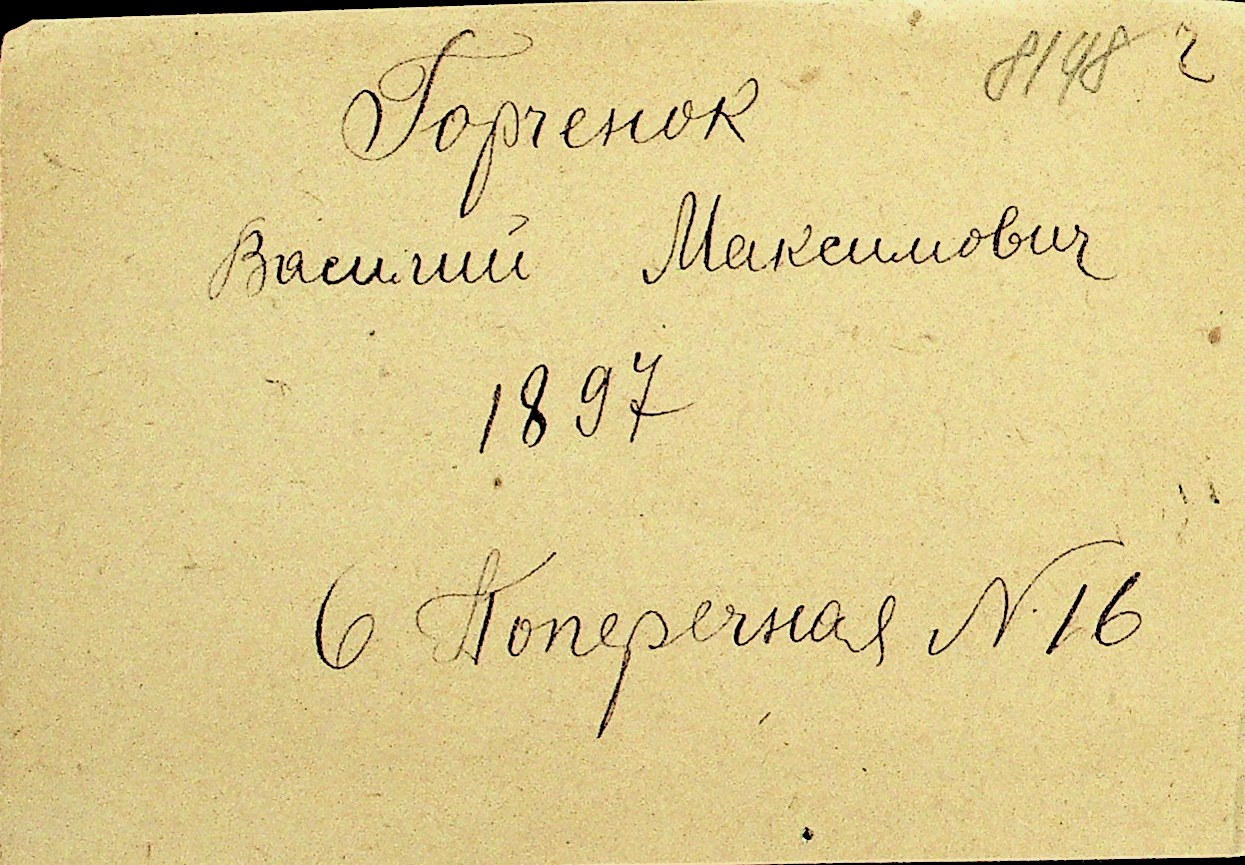 8148 г
Горченок
Василий Максимович
1897
6 Поперечная N 16